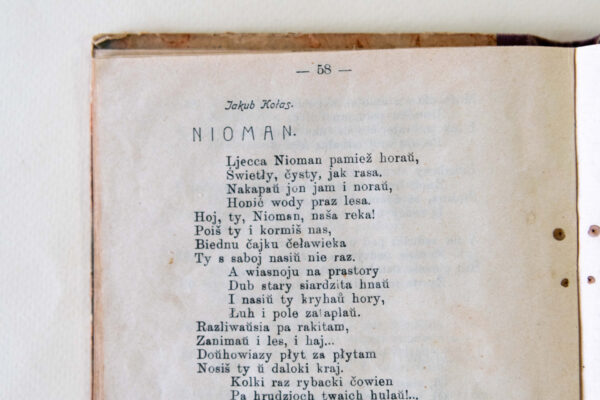 — 58 —
Jakub Kołas.
NIOMAN.
Ljecca Nioman pamiež horaŭ,
Świetły, čysty, jak rasa.
Nakapaŭ jon jam i noraŭ,
Honić wody praz lesa.
Hoj, ty, Nioman, naša reka!
Poiš ty i kormiš nas,
Biednu čajku čeławieka
Ty s saboj nasiŭ nie raz.
A wiasnoju na prastory
Dub stary siardzita hnaŭ
I nasiŭ ty kryhaŭ hory,
Łuh i pole zataplaŭ.
Razliwaŭsia pa rakitam,
Zanimaŭ i les, i haj...
Doŭhowiazy płyt za płytam
Nosiš ty ŭ daloki kraj.
Kolki raz rybacki čowien
Pa hrudzioch twaich hulaŭ!..,